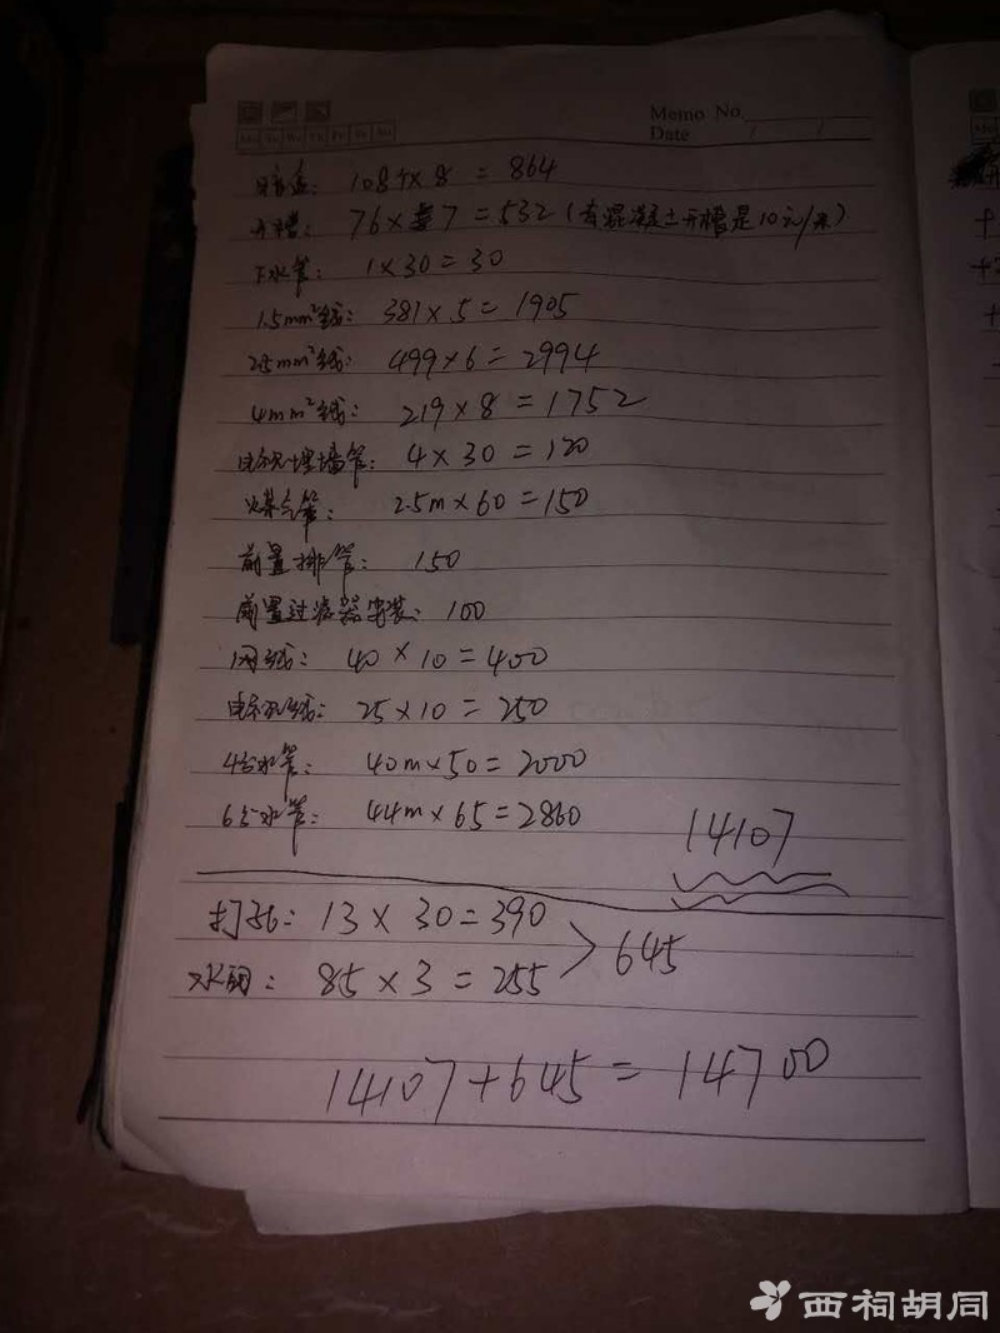 Memo No.
Date / /
Mo Tu We Th Fr Sa Su
暗盒: 108个×8 = 864
开槽: 76×7=532(有混凝土开槽是10元/米)
下水管: 1×30=30
1.5mm²线: 381×5=1905
2.5mm²线: 499×6=2994
4mm²线: 219×8=1752
电视埋墙管: 4×30=120
煤气管: 2.5m×60=150
前置排管: 150
前置过滤器安装: 100
网线: 40×10=400
电视线: 25×10=250
4分水管: 40m×50=2000
6分水管: 44m×65=2860
14107
打孔: 13×30=390
645
水阀: 85×3=255
14107+645=14700
西祠胡同